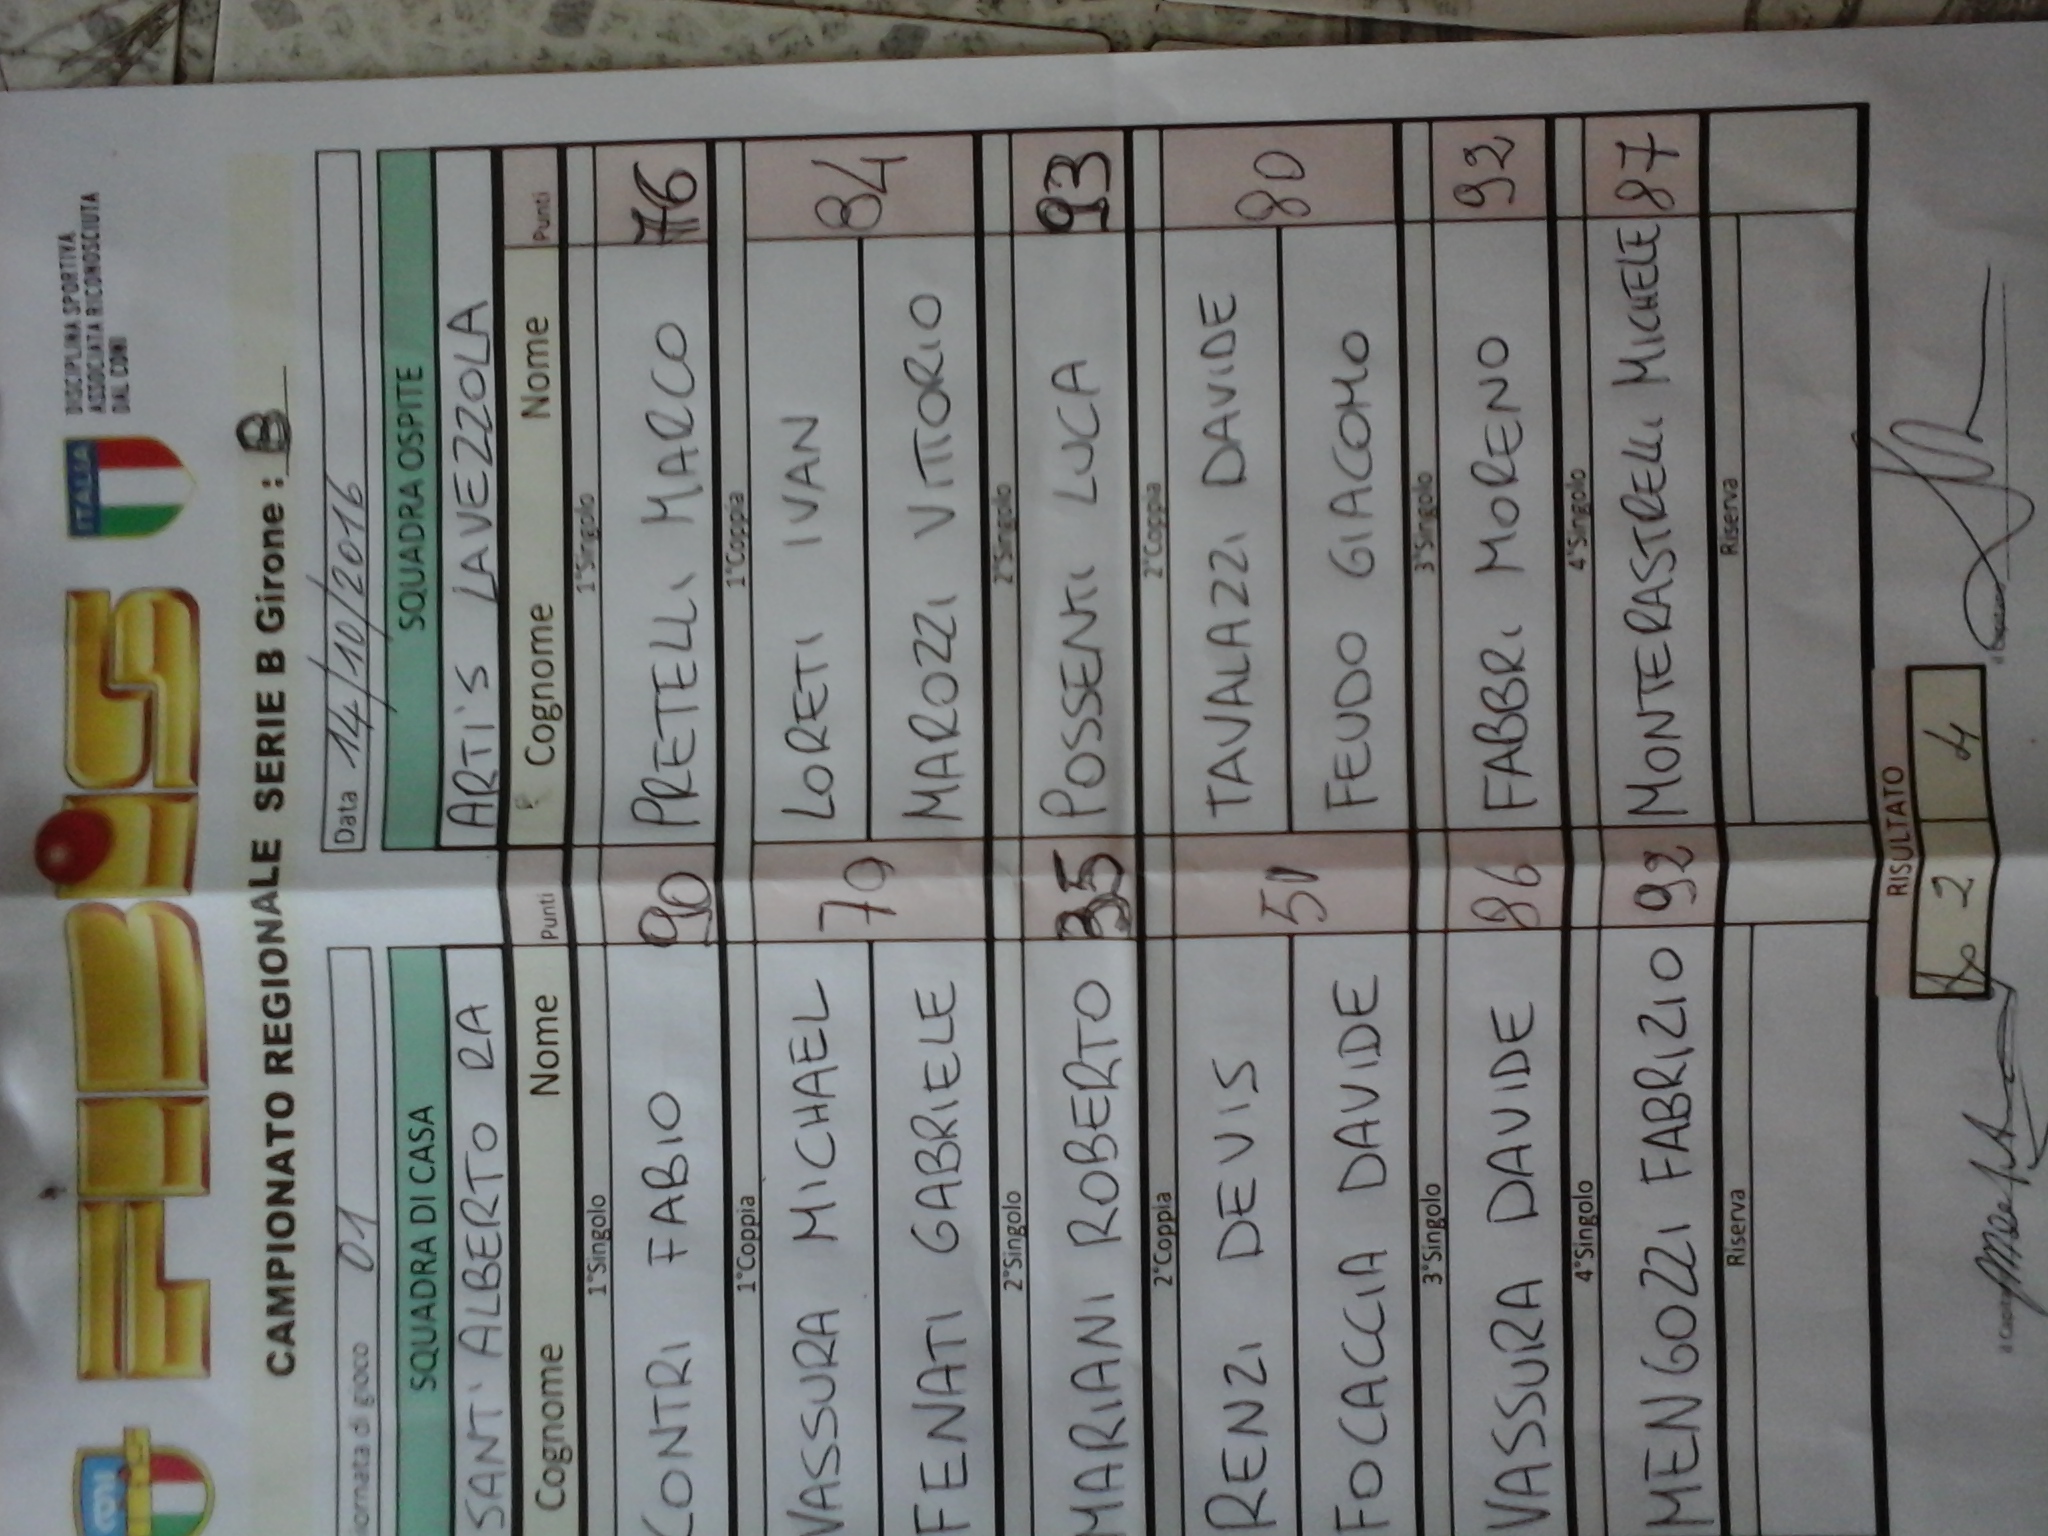 CONI
FIBiS
ITALIA
DISCIPLINA SPORTIVA
ASSOCIATA RICONOSCIUTA
DAL CONI
CAMPIONATO REGIONALE SERIE B Girone : B
iornata di gioco 01 Data 14/10/2016
SQUADRA DI CASA SQUADRA OSPITE
SANT'ALBERTO RA ARTI'S LAVEZZOLA
Cognome Nome Punti Cognome Nome Punti
1°Singolo 1°Singolo
CONTRI FABIO 90 PRETELLI MARCO 76
1°Coppia 1°Coppia
VASSURA MICHAEL 79 LORETI IVAN 84
FENATI GABRIELE MAROZZI VITTORIO
2°Singolo 2°Singolo
MARIANI ROBERTO 35 POSSENTI LUCA 93
2°Coppia 2°Coppia
RENZI DEVIS 51 TAVALAZZI DAVIDE 80
FOCACCIA DAVIDE FEUDO GIACOMO
3°Singolo 3°Singolo
VASSURA DAVIDE 86 FABBRI MORENO 92
4°Singolo 4°Singolo
MENGOZZI FABRIZIO 92 MONTERASTRELLI MICHELE 87
Riserva Riserva
RISULTATO
2 4